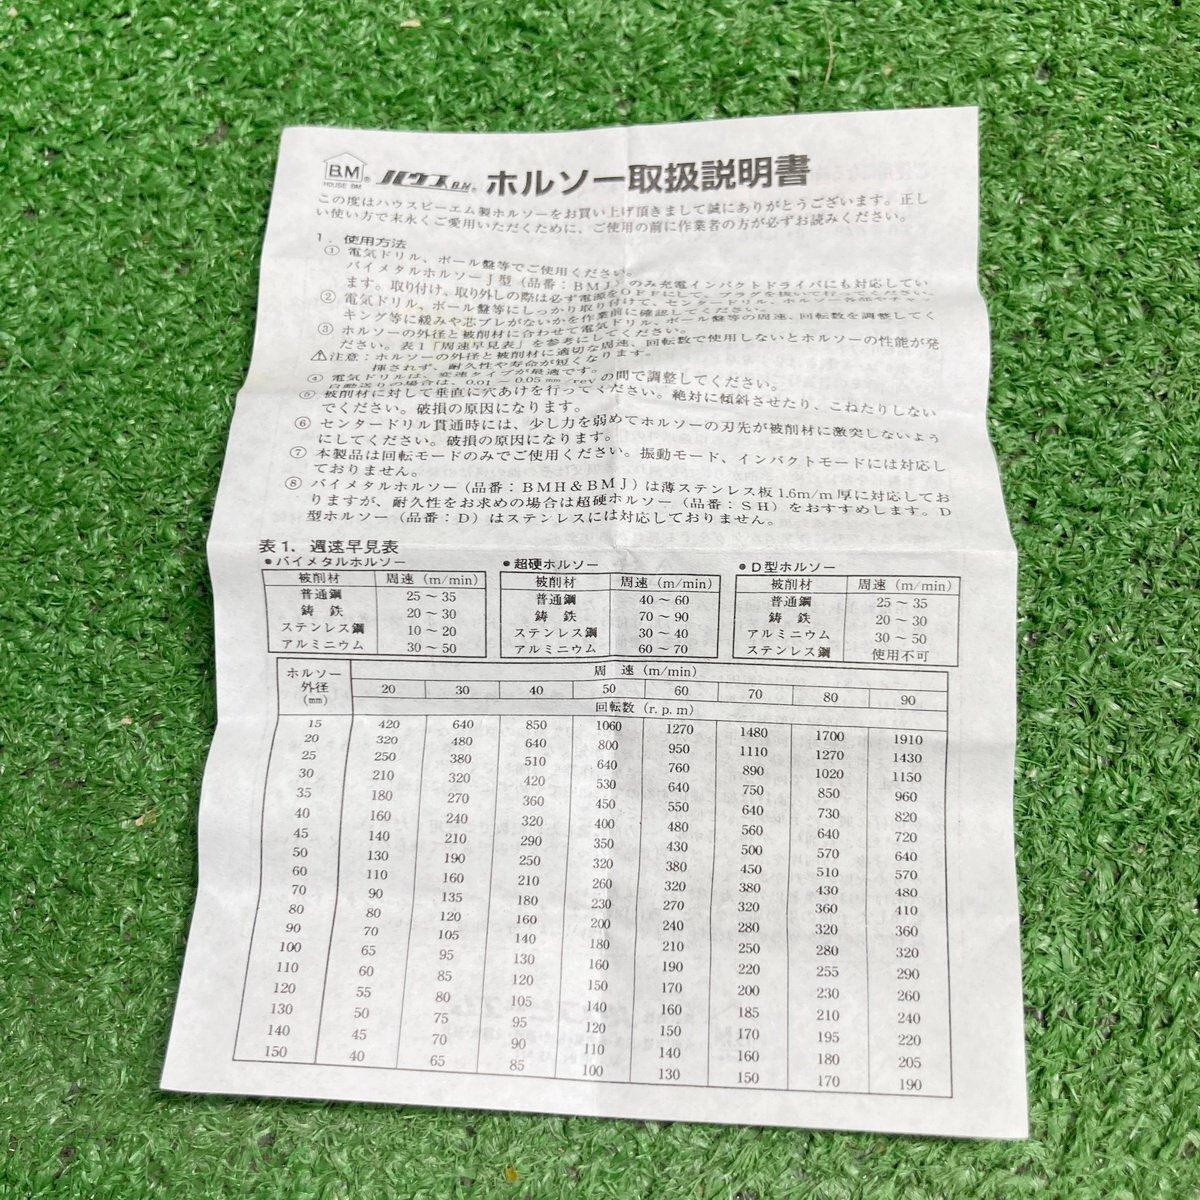 BM® HOUSE BM ハウスB.M® ホルソー取扱説明書
この度はハウスビーエム製ホルソーをお買い上げ頂きまして誠にありがとうございます。正し
い使い方で末永くご愛用いただくために、ご使用の前に作業者の方が必ずお読みください。
1．使用方法
① 電気ドリル、ボール盤等でご使用ください。
バイメタルホルソーJ型（品番：BMJ）のみ充電インパクトドライバにも対応してい
ます。取り付け、取り外しの際は必ず電源をOFFにして、プラグを抜いて行ってください。
② 電気ドリル、ボール盤等にしっかり取り付けて、センタードリル、ホルソー各部やチャッ
キング等に緩みや芯ブレがないかを作業前に確認してください。
③ ホルソーの外径と被削材に合わせて電気ドリル、ボール盤等の周速、回転数を調整してく
ださい。表1「周速早見表」を参考にしてください。
⚠注意：ホルソーの外径と被削材に適切な周速、回転数で使用しないとホルソーの性能が発
揮されず、耐久性や寿命が短くなります。
④ 電気ドリルは、変速タイプが最適です。
自動送りの場合は、0.01～0.05mm/revの間で調整してください。
⑤ 被削材に対して垂直に穴あけを行ってください。絶対に傾斜させたり、こねたりしない
でください。破損の原因になります。
⑥ センタードリル貫通時には、少し力を弱めてホルソーの刃先が被削材に激突しないよう
にしてください。破損の原因になります。
⑦ 本製品は回転モードのみでご使用ください。振動モード、インパクトモードには対応し
ておりません。
⑧ バイメタルホルソー（品番：BMH＆BMJ）は薄ステンレス板1.6m/m厚に対応してお
りますが、耐久性をお求めの場合は超硬ホルソー（品番：SH）をおすすめします。D
型ホルソー（品番：D）はステンレスには対応しておりません。
表1．週速早見表
●バイメタルホルソー
被削材 周速（m/min）
普通鋼 25～35
鋳鉄 20～30
ステンレス鋼 10～20
アルミニウム 30～50
●超硬ホルソー
被削材 周速（m/min）
普通鋼 40～60
鋳鉄 70～90
ステンレス鋼 30～40
アルミニウム 60～70
●D型ホルソー
被削材 周速（m/min）
普通鋼 25～35
鋳鉄 20～30
アルミニウム 30～50
ステンレス鋼 使用不可
ホルソー外径(mm) 周速（m/min）
20 30 40 50 60 70 80 90
回転数（r.p.m）
15 420 640 850 1060 1270 1480 1700 1910
20 320 480 640 800 950 1110 1270 1430
25 250 380 510 640 760 890 1020 1150
30 210 320 420 530 640 750 850 960
35 180 270 360 450 550 640 730 820
40 160 240 320 400 480 560 640 720
45 140 210 290 350 430 500 570 640
50 130 190 250 320 380 450 510 570
60 110 160 210 260 320 380 430 480
70 90 135 180 230 270 320 360 410
80 80 120 160 200 240 280 320 360
90 70 105 140 180 210 250 280 320
100 65 95 130 160 190 220 255 290
110 60 85 120 150 170 200 230 260
120 55 80 105 140 160 185 210 240
130 50 75 95 120 150 170 195 220
140 45 70 90 110 140 160 180 205
150 40 65 85 100 130 150 170 190